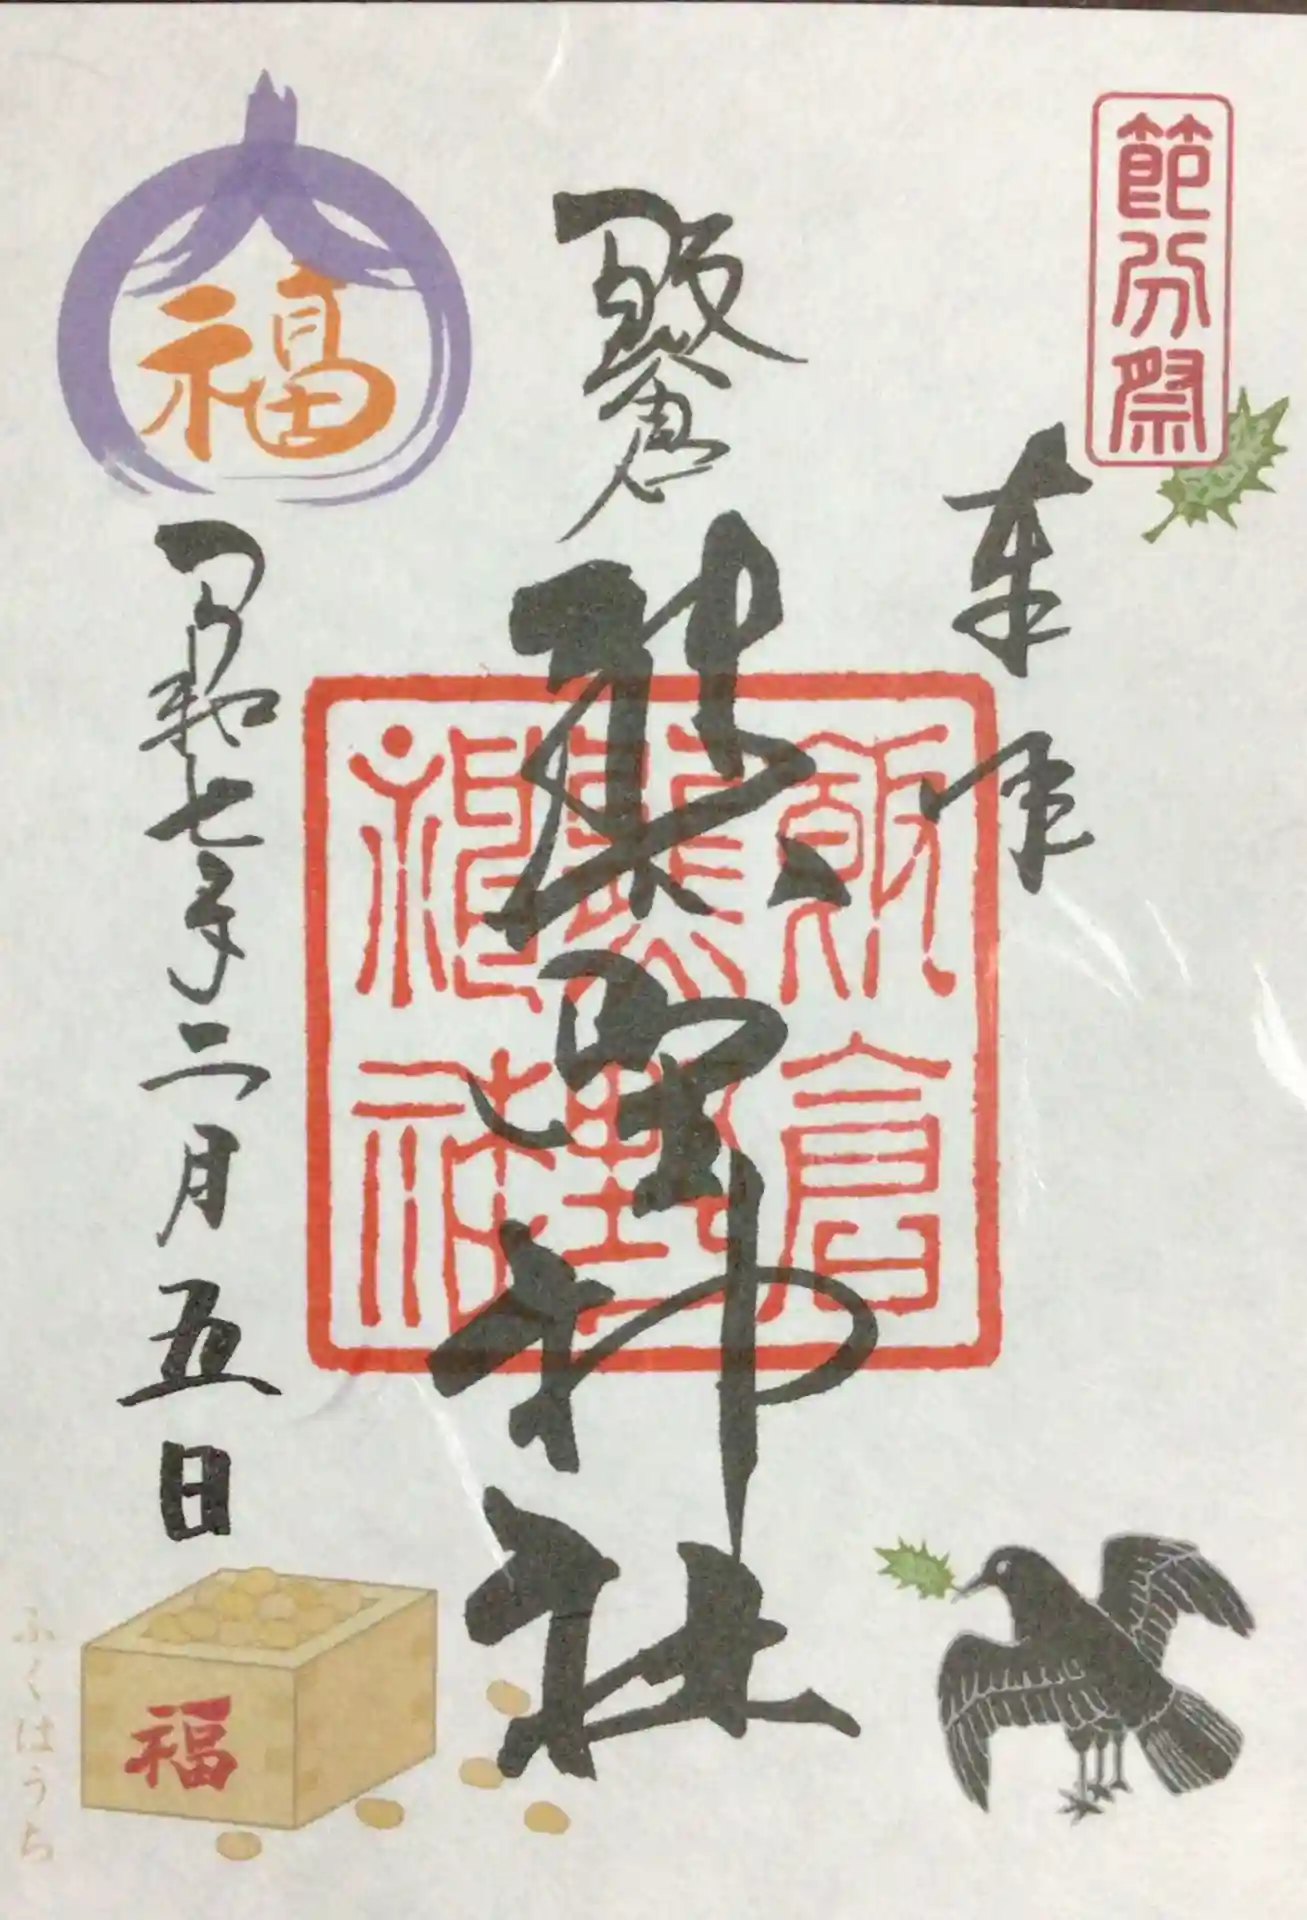 節分祭
奉拝
飯倉
熊野神社
飯倉
熊野
神社
福
令和七年二月五日
福
ふくはうち